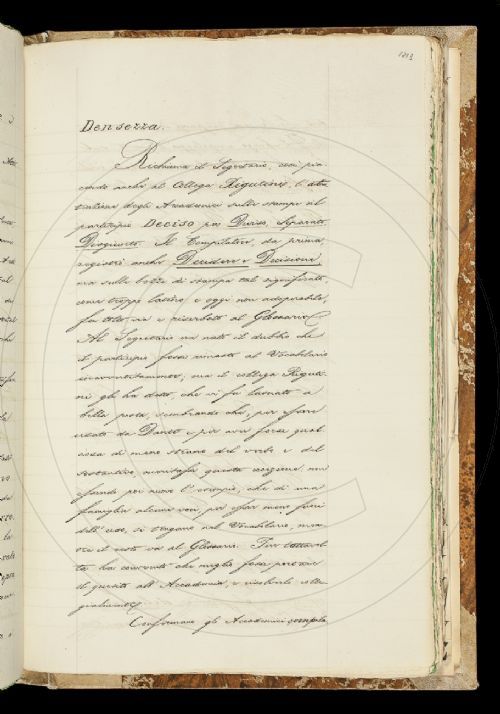 1213
Densezza.
Richiama il Segretario, così pia-
cendo anche al Collega Rigutini, l'at-
tenzione degli Accademici sulle stampe il
participio Deciso per Diviso, Separato,
Disgiunto. Il Compilatore, da prima,
registrò anche Decidere e Decisione,
ma sulle bozze di stampa tal significato,
come troppo latino e oggi non adoprabile,
fu tolto via e riserbato al Glossario.
Al Segretario era nato il dubbio che
il participio fosse rimasto al Vocabolario
inavvertitamente; ma il collega Riguti-
ni gli ha detto, che vi fu lasciato a
bella posta, sembrando che, per essere
usato da Dante e per aver forse qual
cosa di meno strano del verbo e del
sostantivo, meritasse questa eccezione, non
essendo per nuovo l'esempio, che di una
famiglia alcune voci, per esser meno fuori
dell'uso, si tengano nel Vocabolario, men-
tre il resto va al Glossario. Pur tuttavol-
ta ha convenuto che meglio fosse portare
il quesito all'Accademia, e risolverlo colle-
gialmente.
Confermano gli Accademici